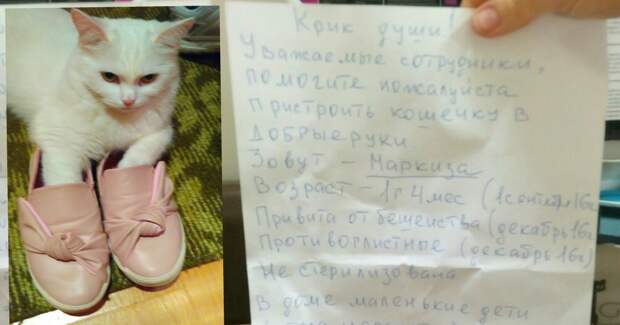 Крик души!
Уважаемые сотрудники,
помогите пожалуйста
пристроить кошечку в
добрые руки
Зовут - Маркиза
Возраст - 1г 4 мес (1 сентября 16г
Привита от бешенства (декабрь 16г
Противоглистные (декабрь 16г)
Не стерилизована
В доме маленькие дети